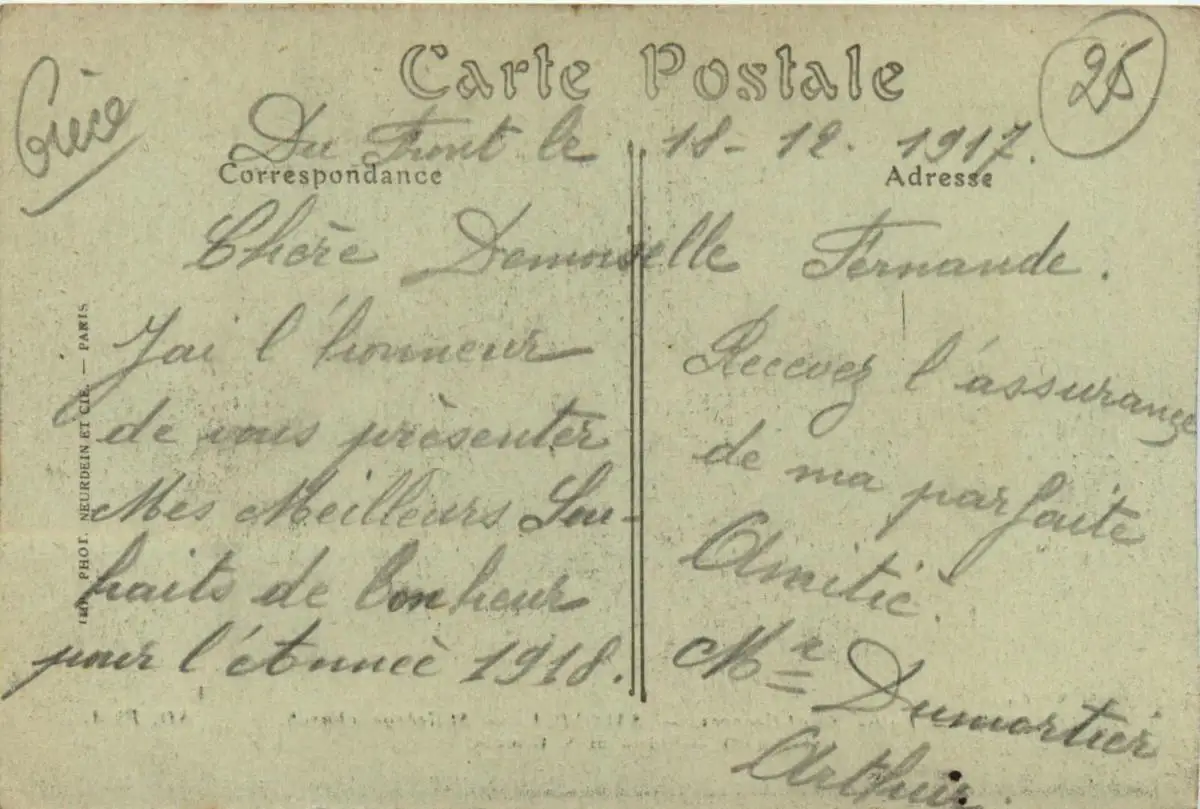 Carte Postale
25
Grèce
Du Front le 18-12. 1917.
Correspondance
Adresse
Chère Demoiselle Fernande.
Jai l'honneur
de vous prèsenter
Mes Meilleurs Sou-
haits de bonheur
pour l'étAnneè 1918.
Recevez l'assurance
de ma parfaite
Amitiè.
Mr Dumortier
Arthur.
IMP. PHOT. NEURDEIN ET CIE. — PARIS